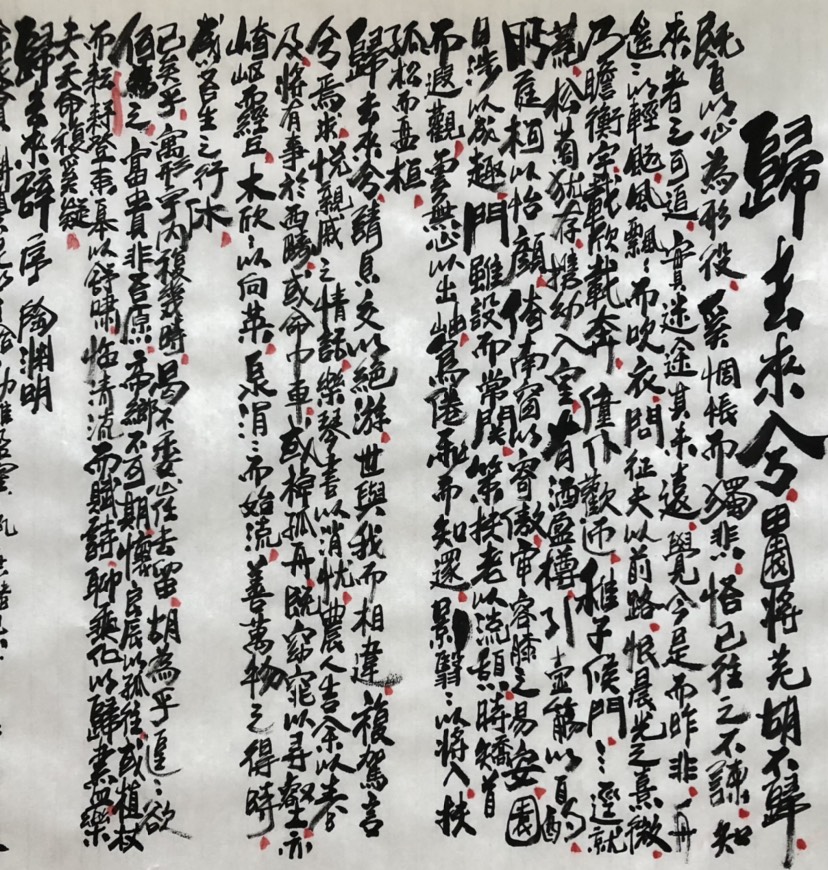 歸去來兮田園將芜胡不歸
既自以心為形役奚惆悵而獨悲悟已往之不諫知
來者之可追實迷途其未遠覺今是而昨非舟
遙：以輕颺風飄：而吹衣問征夫以前路恨晨光之熹微
乃瞻衡宇載欣載奔僮仆歡迎稚子候門三逕就
荒松菊猶存攜幼入室有酒盈樽引壺觴以自酌
眄庭柯以怡顏倚南窗以寄傲審容膝之易安園
日涉以成趣門雖設而常関策扶老以流憩時矯首
而遐觀雲無心以出岫鳥倦飛而知還影翳：以將入扶
孤松而盘桓
歸去來兮請息交以絕游世與我而相違複駕言
兮焉求悅親戚之情話樂琴書以消忧農人告余以春
及將有事於西疇或命巾車或棹孤舟既窈窕以尋壑亦
崎嶇而經丘木欣：以向荣泉涓：而始流善萬物之得時
感吾生之行休
已矣乎寓形宇內複幾時曷不委心任去留胡為乎遑：欲
何為之富貴非吾愿帝鄉不可期懷良辰以孤往或植杖
而耘耔登東皋以舒嘯臨清流而賦詩聊乘化以歸盡樂
夫天命複奚疑
歸去來辭 序 陶淵明